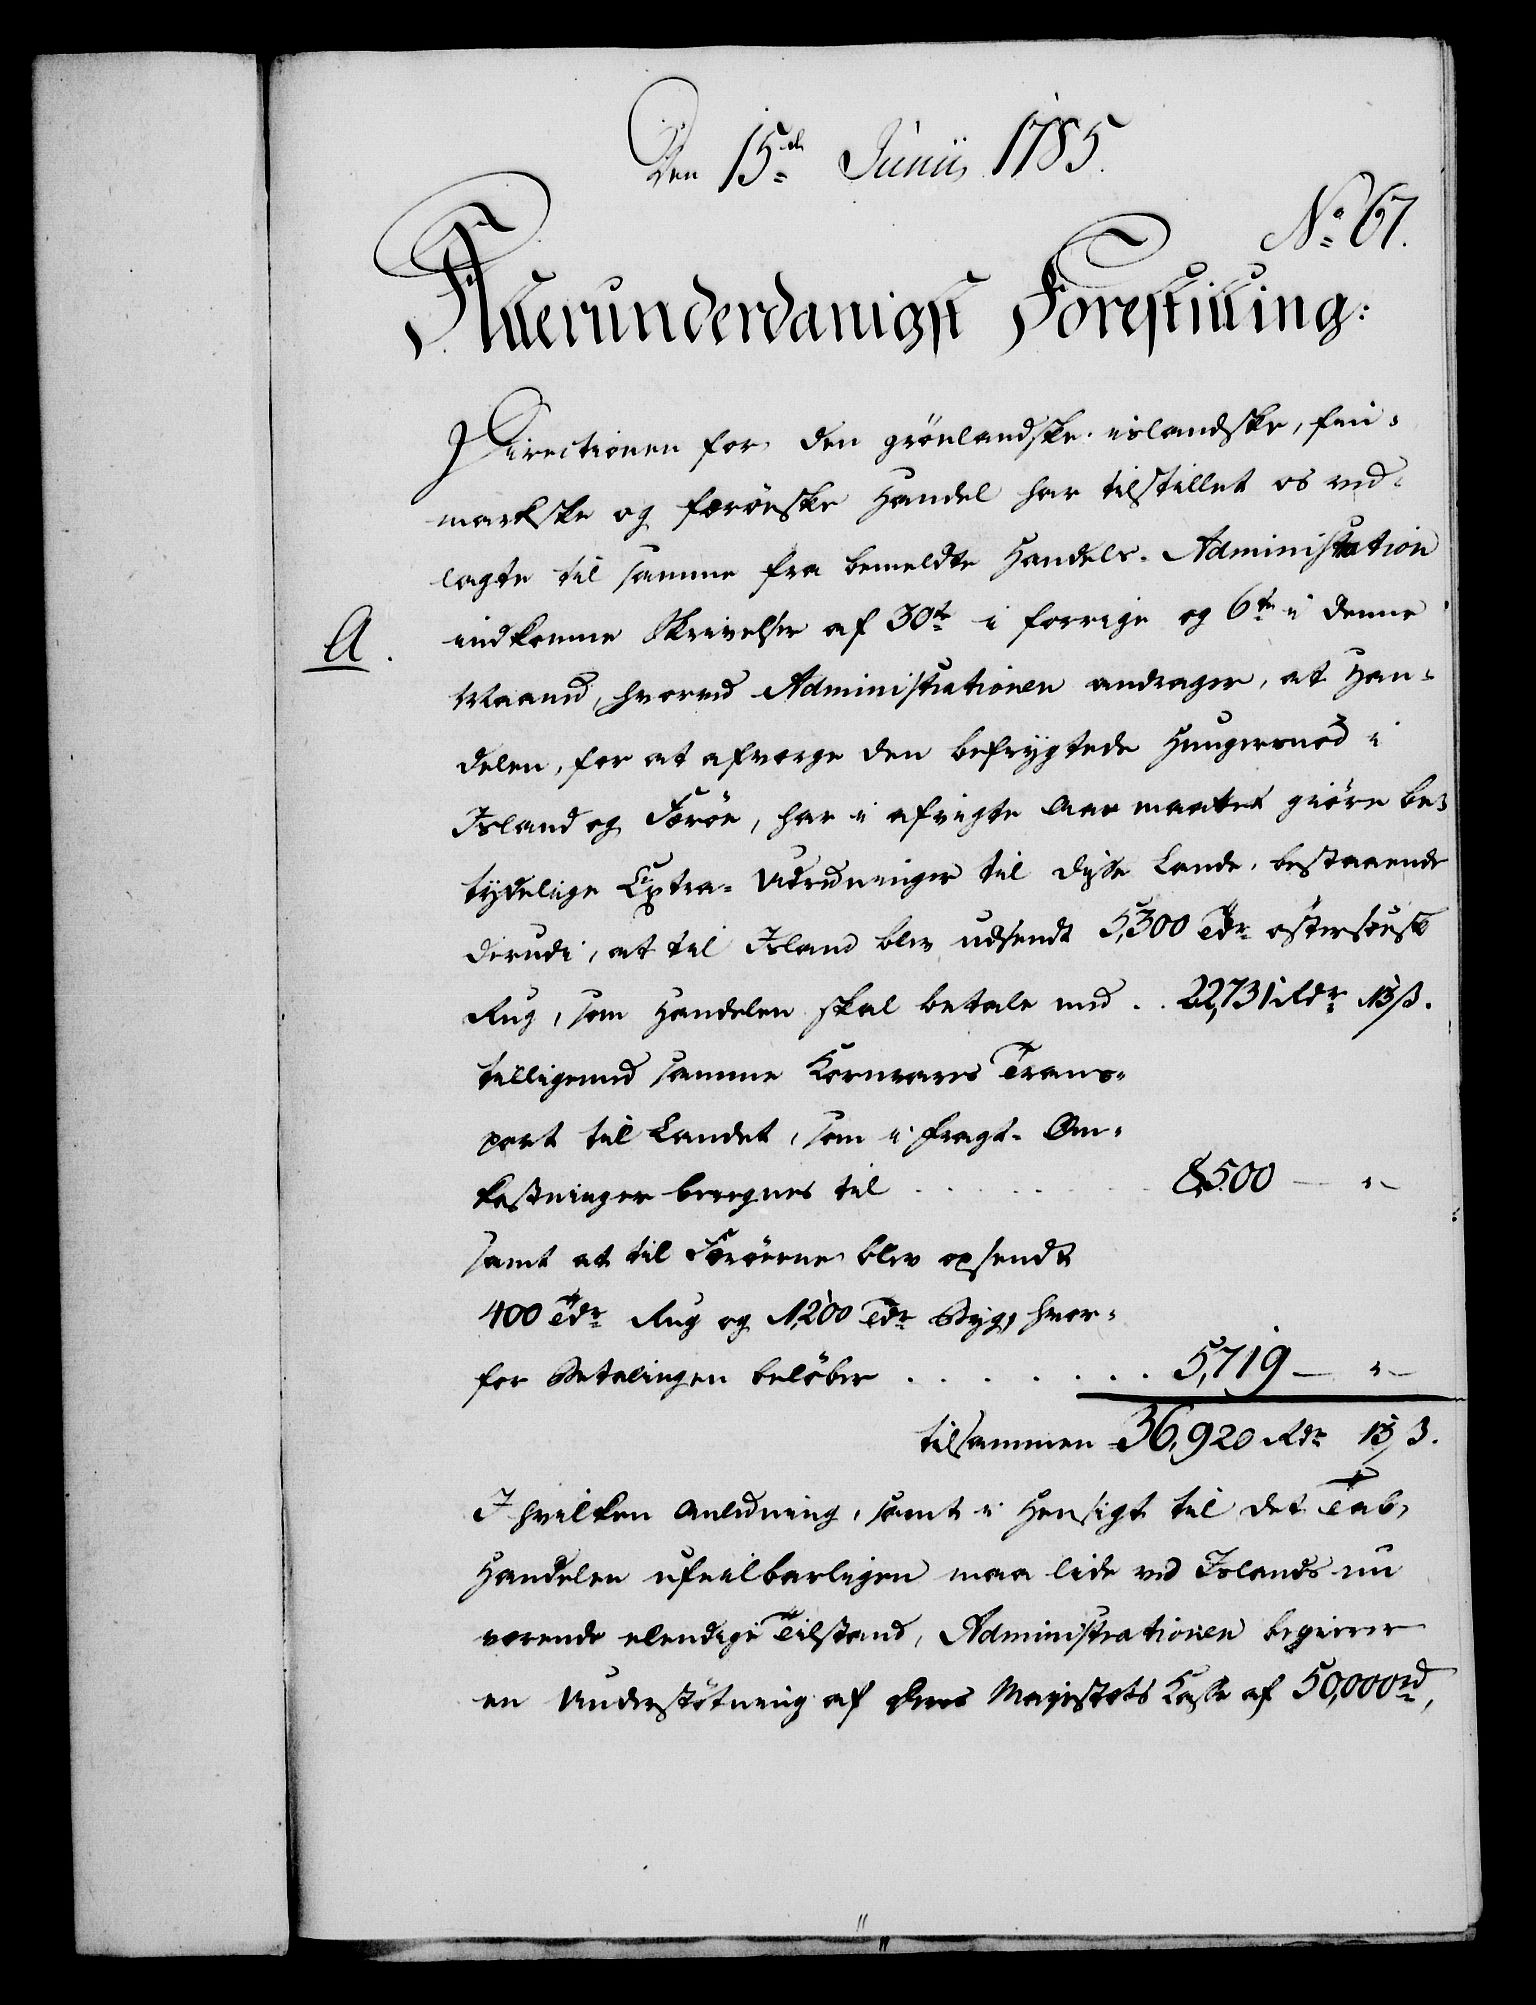 Den 15de Junii 1785.
No 67.
Allerunderdanigst Forestilling:
Directionen for den grönlandske islandske, fin-
markske og færöeske Handel har tilstillet os ved-
lagte til samme fra bemeldte Handels-Administration
A.
indkomne Skrivelser af 30te i forrige og 6te i denne
Maaned, hvorved Administrationen andrager, at Han-
delen, for at afværge den befrygtede Hungersnöd i
Island og Færöe, har i afvigte Aar maattet giöre be-
tydelige Extra-Udredninger til disse Lande, bestaaende
derudi, at til Island blev udsendt 5,300 Tdr östersöisk
Rug, som Handelen skal betale med . . 22,731 Rdr 13 ß.
tilligemed samme Kornvares Trans-
port til Landet, som i Fragt-Om-
kostninger beregnes til . . . . . 8,500 — " —
samt at til Færöerne blev opsendt
400 Tdr Rug og 1,200 Tdr Byg, hvor-
for Betalingen belöber . . . . . . . 5,719 — " —
tilsammen 36,920 Rdr 13 ß.
I hvilken Anledning, samt i Hensigt til det Tab,
Handelen ufeilbarligen maa lide ved Islands nu
værende elendige Tilstand, Administrationen begierer
en Understötning af Deres Majestæts Kasse af 50,000 rd,